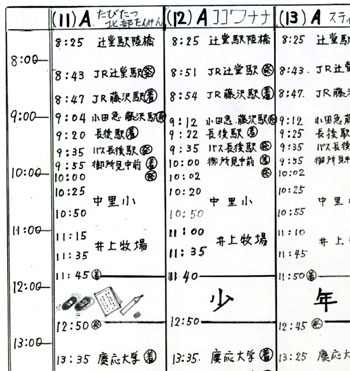 (11) A たびたつ
北部たんけん
(12) A ココ・ワナナ
(13) A スラ
8:00
9:00
10:00
11:00
12:00
13:00
8:25 辻堂駅陸橋
8:43 JR辻堂駅発
8:47 JR藤沢駅着
9:04 小田急 藤沢駅発
9:20 長後駅着
9:35 バス長後駅発
9:55 御所見中前着
10:00 発
10:25
中里小
10:50
11:15
井上牧場
11:35
11:45 着
12:50 発
13:35 慶応大学着
8:25 辻堂駅陸橋
8:51 JR辻堂駅発
8:54 JR藤沢駅着
9:12 小田急・藤沢駅発
9:22 長後駅着
9:35 バス長後駅発
10:00 御所見中前着
10:02 発
10:20
中里小
10:50
11:00
井上牧場
11:35
11:40
少
12:50
13:35. 慶応大学着
8:25 辻堂駅
8:43. JR辻堂
8:47. JR藤沢
9:12 小田急
9:25 長後駅
9:35 バス長後
9:55 御所見
10:02
10:25
中里
10:55
11:10
井上
11:45
11:50着
年
12:45 発
13:25 慶応大